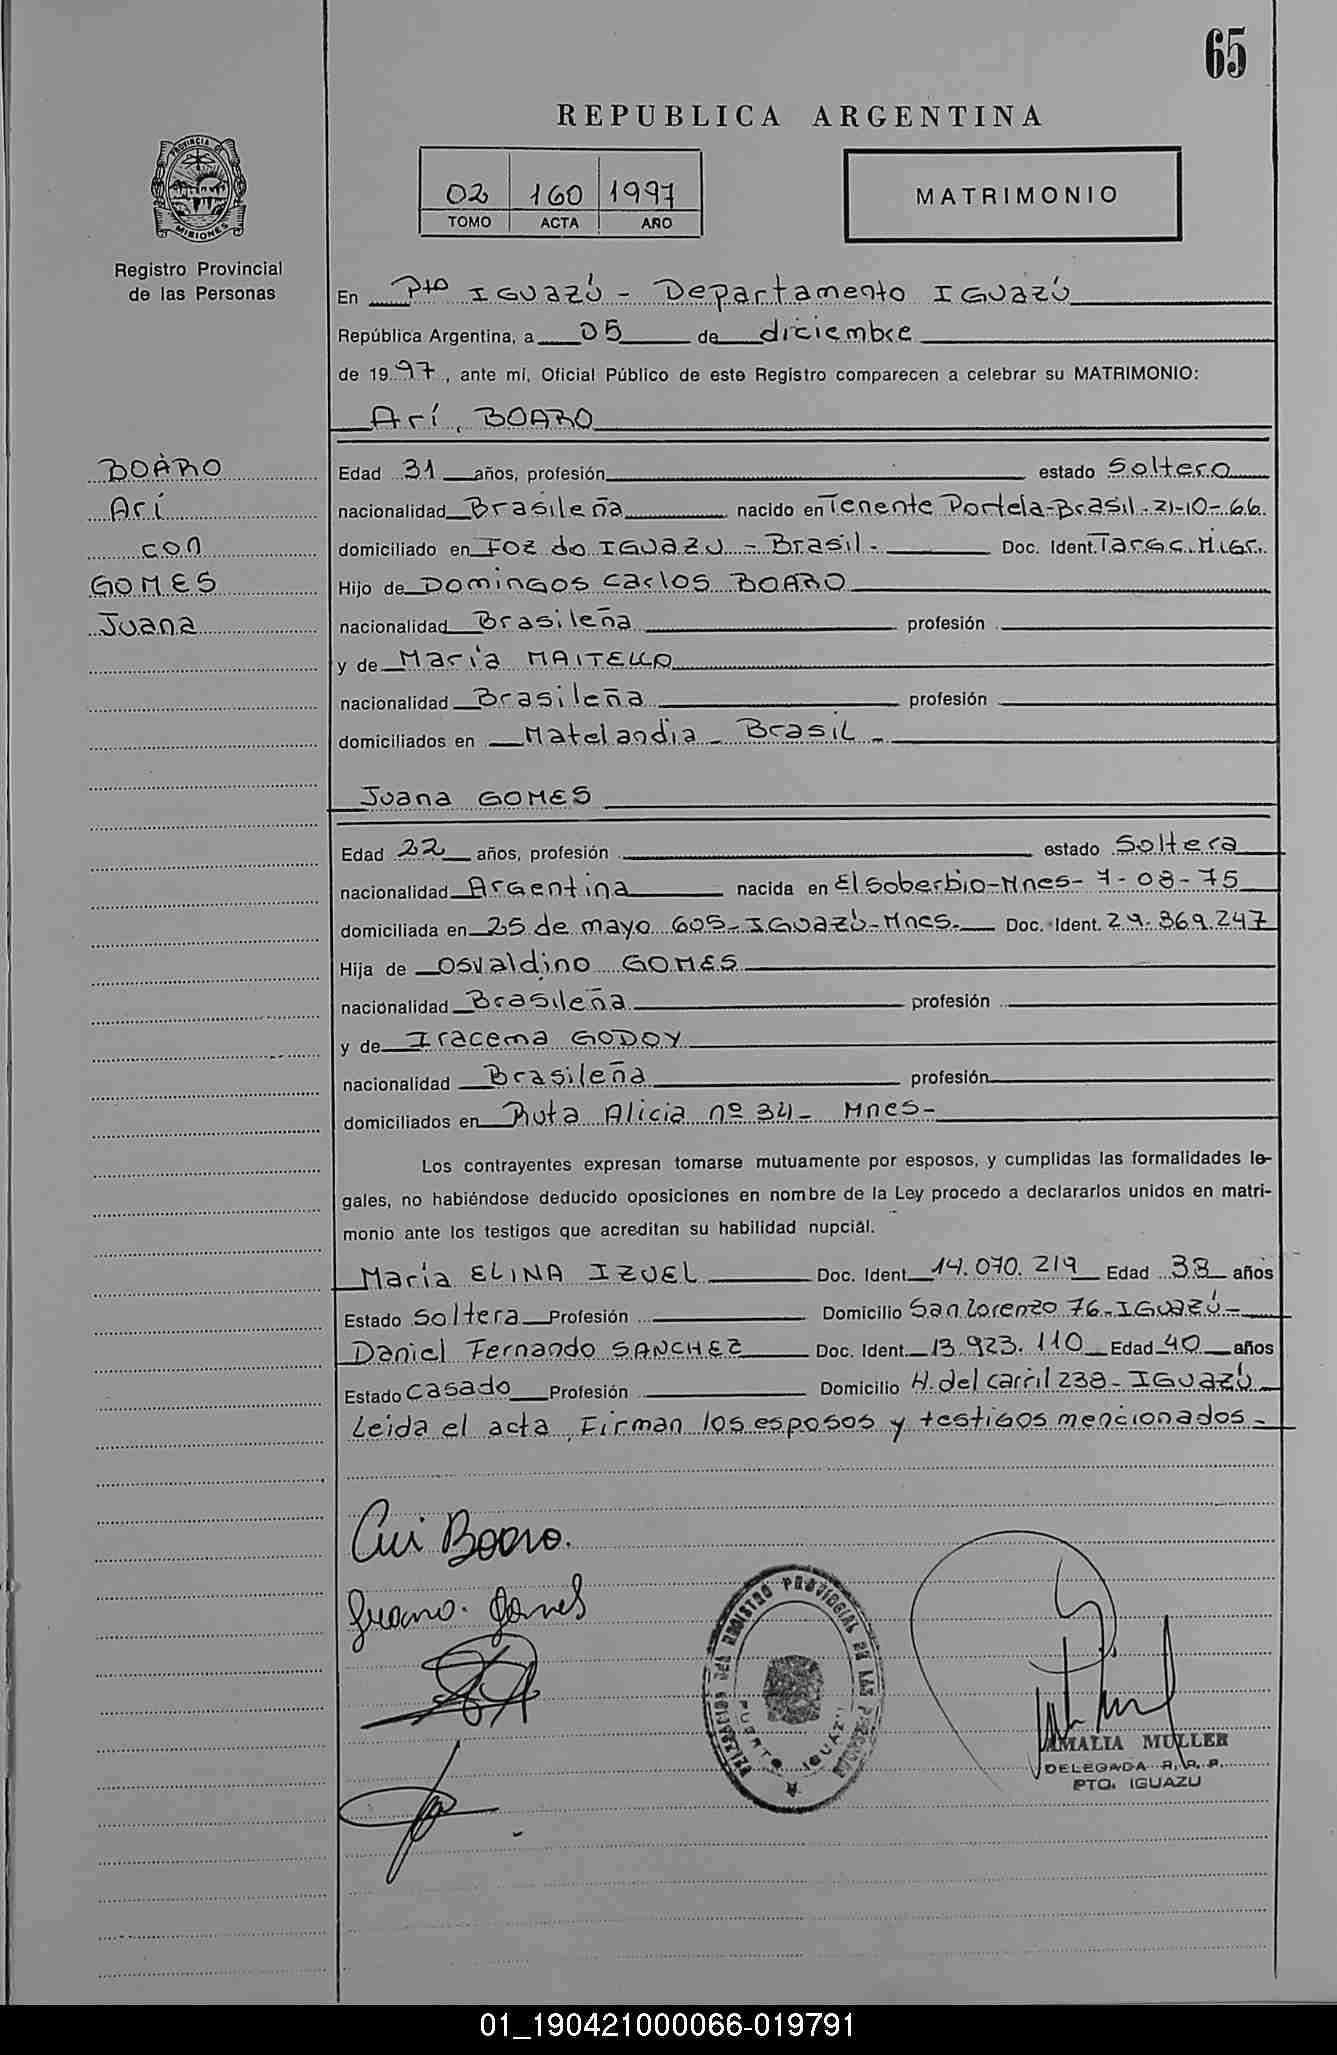 65
REPUBLICA ARGENTINA
02 160 1997
TOMO ACTA AÑO
MATRIMONIO
PROVINCIA DE
MISIONES
Registro Provincial
de las Personas
En Pto IGUAZÚ - Departamento IGUAZÚ
República Argentina, a 05 de diciembre
de 1997, ante mí, Oficial Público de este Registro comparecen a celebrar su MATRIMONIO:
Arí, BOARO
BOARO
Arí
con
GOMES
Juana
Edad 31 años, profesión estado Soltero
nacionalidad Brasileña nacido en Tenente Portela-Brasil-21-10-66.
domiciliado en FOZ do IGUAZU - Brasil - Doc. Ident. Targ.c.Migr.
Hijo de Domingos Carlos BOARO
nacionalidad Brasileña profesión
y de María MAITELLO
nacionalidad Brasileña profesión
domiciliados en Matelandia - Brasil -
Juana GOMES
Edad 22 años, profesión estado Soltera
nacionalidad Argentina nacida en El Soberbio-Mnes-7-08-75
domiciliada en 25 de mayo 605-IGUAZÚ-Mnes- Doc. Ident. 29.869.247
Hija de Osvaldino GOMES
nacionalidad Brasileña profesión
y de Iracema GODOY
nacionalidad Brasileña profesión
domiciliados en Ruta Alicia nº 34- Mnes-
Los contrayentes expresan tomarse mutuamente por esposos, y cumplidas las formalidades le-
gales, no habiéndose deducido oposiciones en nombre de la Ley procedo a declararlos unidos en matri-
monio ante los testigos que acreditan su habilidad nupcial.
María ELINA IZUEL Doc. Ident. 14.070.219 Edad 38 años
Estado Soltera Profesión Domicilio San Lorenzo 76-IGUAZÚ-
Daniel Fernando SANCHEZ Doc. Ident. 13.923.110 Edad 40 años
Estado Casado Profesión Domicilio H. del Carril 238-IGUAZÚ
Leida el acta, Firman los esposos y testigos mencionados-
Ari Boaro.
Juana. Gomes
DELEGACION DEL REGISTRO PROVINCIAL DE LAS PERSONAS
PUERTO IGUAZU
AMALIA MULLER
DELEGADA R. P. P.
PTO. IGUAZU
01_190421000066-019791